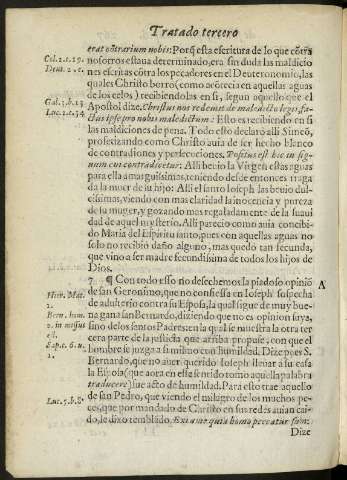 Tratado tercero
erat cõtrarium nobis: Porq̃ esta escritura de lo que cõtra
nosotros estaua determinado, era sin duda las maldicio
nes escritas cõtra los pecadores en el Deuteronomio, las
quales Christo borro (como acõtecia en aquellas aguas
de los celos) recibiendo las en si, segun aquello que el
Apostol dize, Christus nos redemit de maledicto legis, fa-
ctus ipse pro nobis maledictum: Esto es recibiendo en si
las maldiciones de pena. Todo esto declaro alli Simeõ,
profetizando como Christo auia de ser hecho blanco
de contradiciones y persecuciones. Positus est hic in sig-
num cui contradicetur: Alli beuio la Virgen estas aguas
para ella amarguissimas, teniendo desde entonces traga
da la muerte de su hijo. Alli el santo Ioseph las beuio dul-
cissimas, viendo con mas claridad la inocencia y pureza
de su muger, y gozando mas regaladamente de la suaui
dad de aquel mysterio. Alli parecio como auia concibi-
do Maria del Espiritu santo, pues con aquellas aguas no
solo no recibio daño alguno, mas quedo tan fecunda,
que vino a ser madre fecundissima de todos los hijos de
Dios.
7 ¶ Con todo esso no desechemos la piadosa opiniõ
de san Geronimo, que no confiessa en Ioseph sospecha
de adulterio contra su Esposa, la qual sigue de muy bue-
na gana san Bernardo, diziendo que no es opinion suya,
sino de los santos Padres: en la qual se muestra la otra ter
cera parte de la justicia que arriba propuse, con que el
hombre se juzga a si mismo con humildad. Dize pues S.
Bernardo, que no auer querido Ioseph lleuar a su casa
la Esposa (que aora en este sentido tomo aquella palabra
traducere) fue acto de humildad. Para esto trae aquello
de san Pedro, que viendo el milagro de los muchos pe-
ces, que por mandado de Christo en sus redes auian cai-
do, le dixo temblado. Exi a me quia homo peccator sum:
Dize
Col. 2. c. 29.
Deut. 2. c.
Gal. 3. b. 13
Luc. 2. c. 34
A
Hier. Mat.
Bern. hom.
2. in missus
est.
Luc. 5. b. 8.